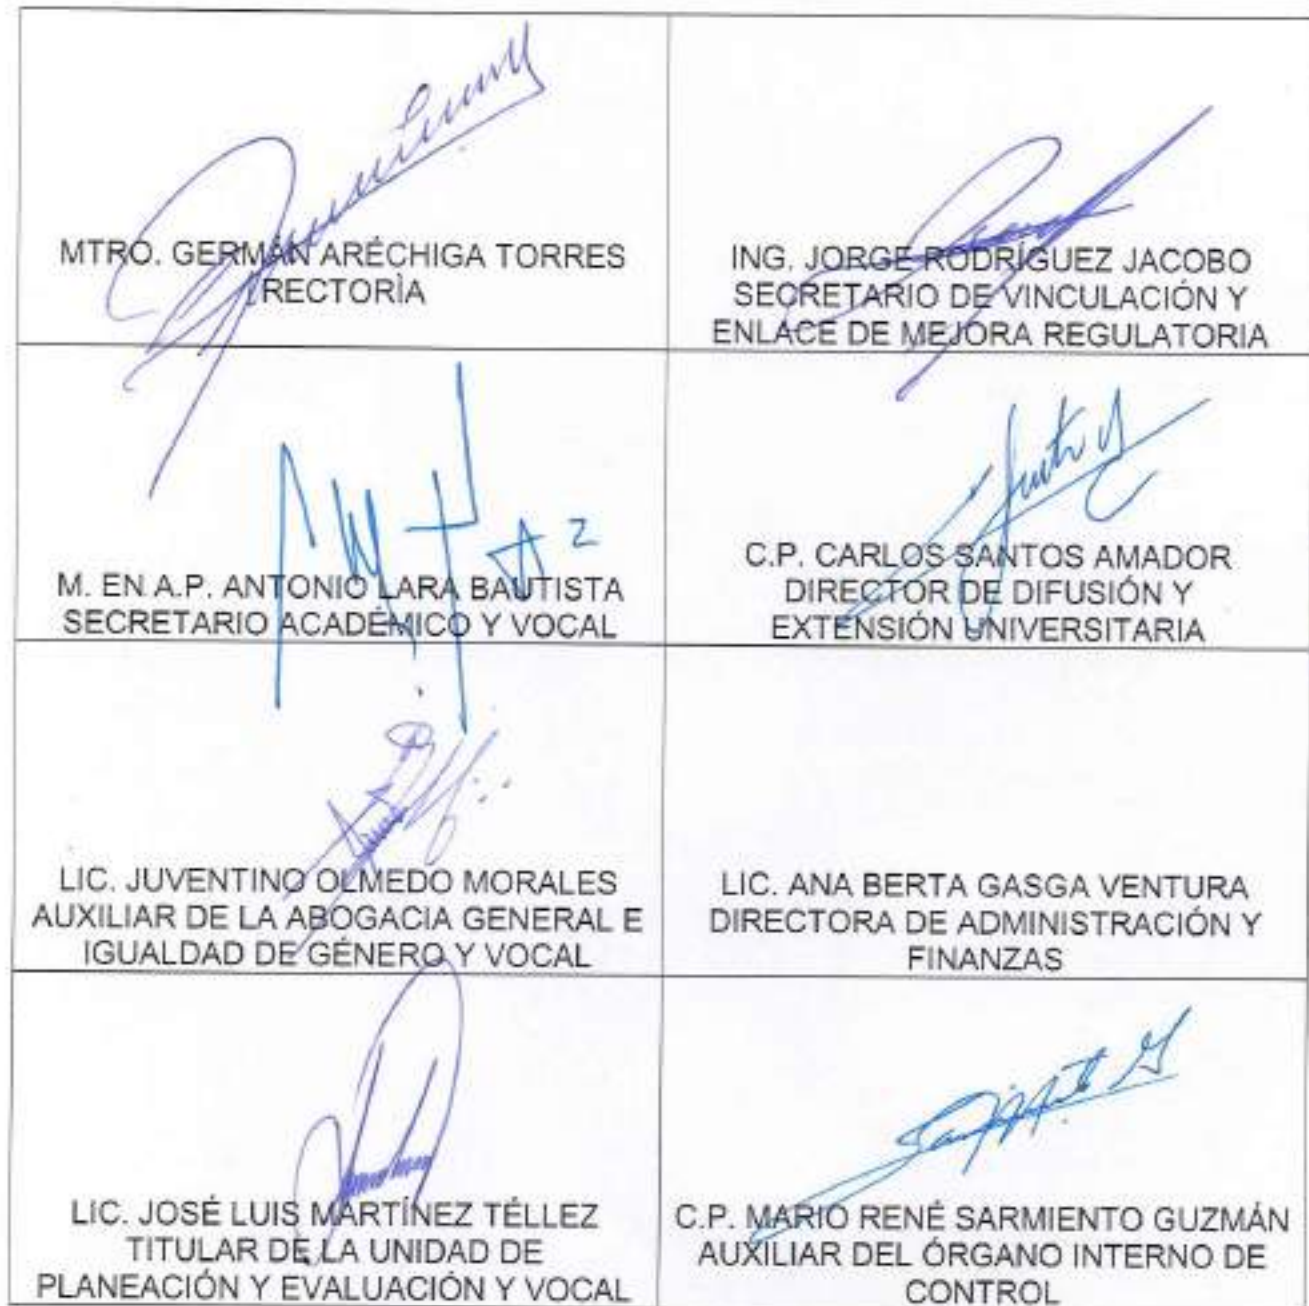 MTRO. GERMÁN ARÉCHIGA TORRES
RECTORÌA
ING. JORGE RODRÍGUEZ JACOBO
SECRETARIO DE VINCULACIÓN Y
ENLACE DE MEJORA REGULATORIA
M. EN A.P. ANTONIO LARA BAUTISTA
SECRETARIO ACADÉMICO Y VOCAL
C.P. CARLOS SANTOS AMADOR
DIRECTOR DE DIFUSIÓN Y
EXTENSIÓN UNIVERSITARIA
LIC. JUVENTINO OLMEDO MORALES
AUXILIAR DE LA ABOGACIA GENERAL E
IGUALDAD DE GÉNERO Y VOCAL
LIC. ANA BERTA GASGA VENTURA
DIRECTORA DE ADMINISTRACIÓN Y
FINANZAS
LIC. JOSÉ LUIS MARTÍNEZ TÉLLEZ
TITULAR DE LA UNIDAD DE
PLANEACIÓN Y EVALUACIÓN Y VOCAL
C.P. MARIO RENÉ SARMIENTO GUZMÁN
AUXILIAR DEL ÓRGANO INTERNO DE
CONTROL